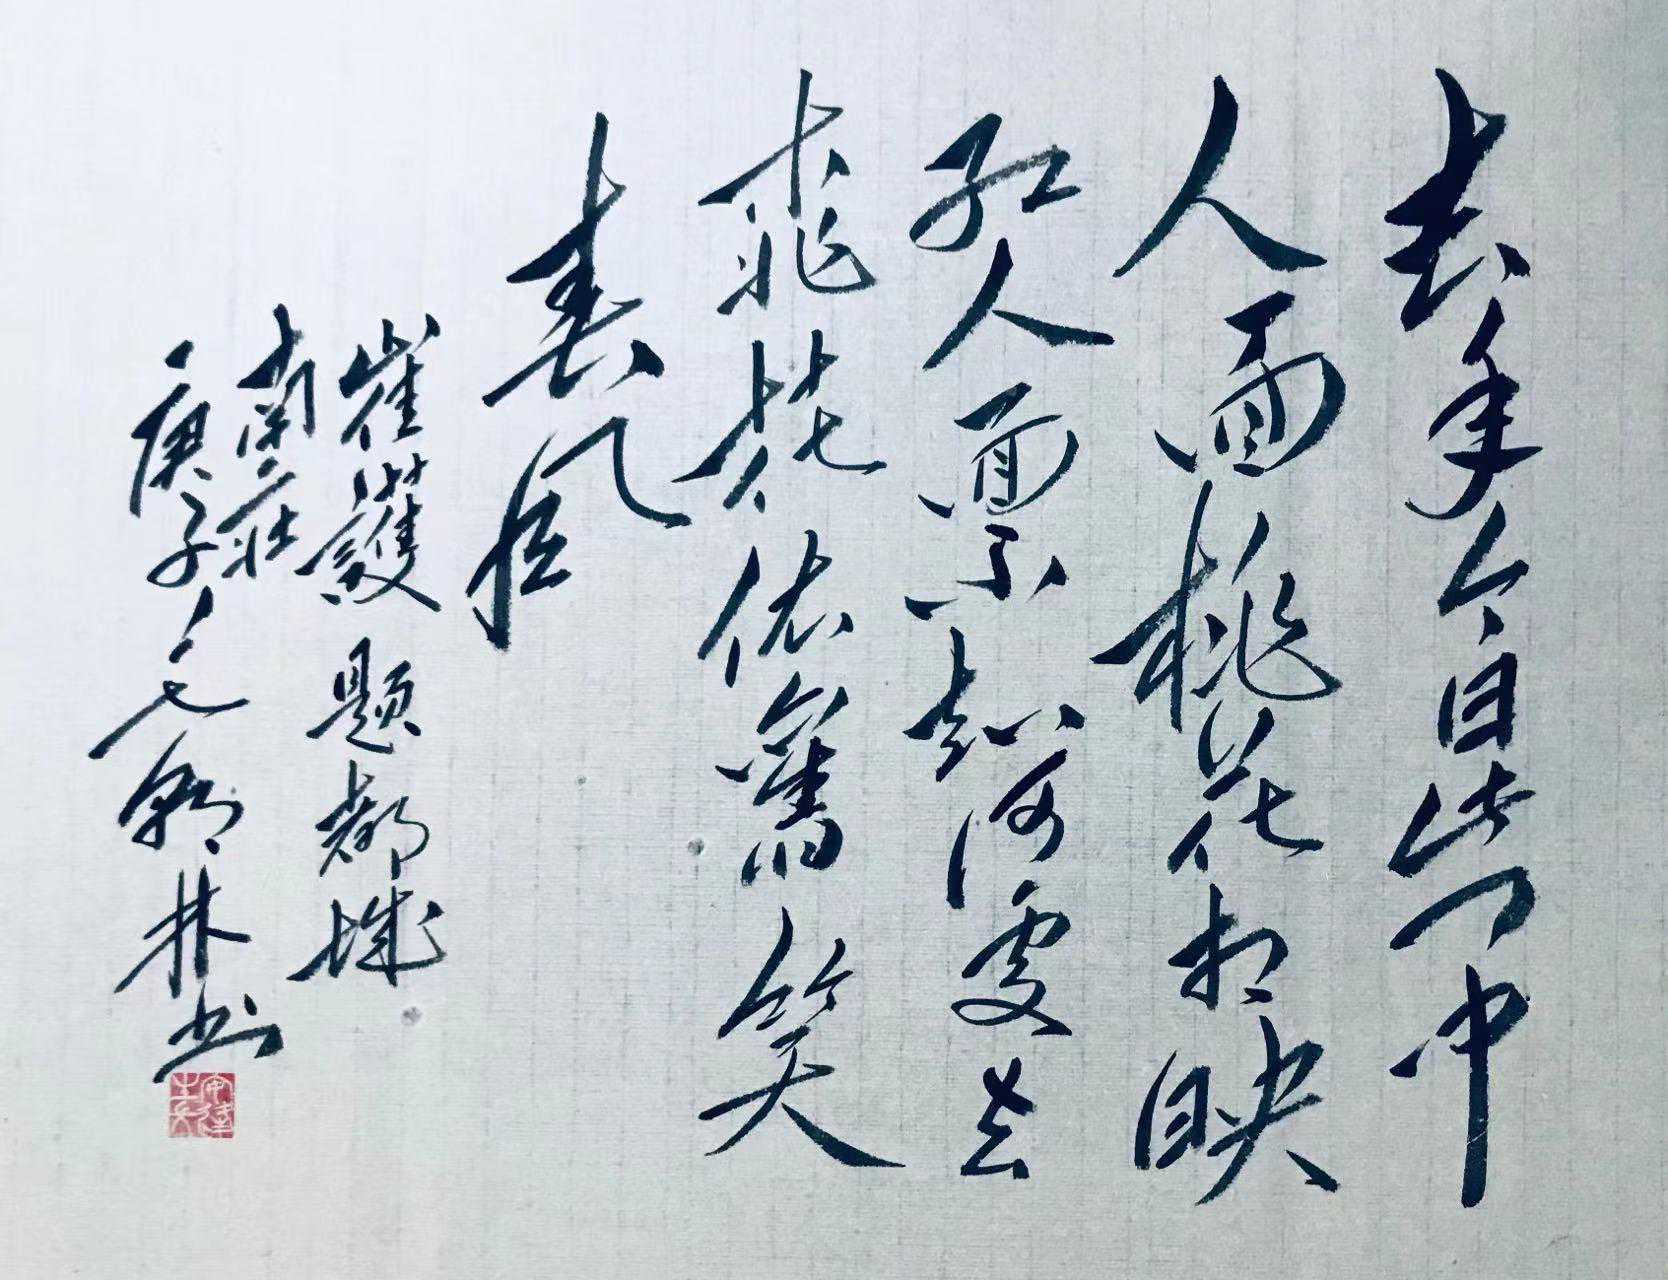 去年今日此门中
人面桃花相映
红人面不知何处去
桃花依舊笑
春风
崔護题都城
南莊
庚子
林书